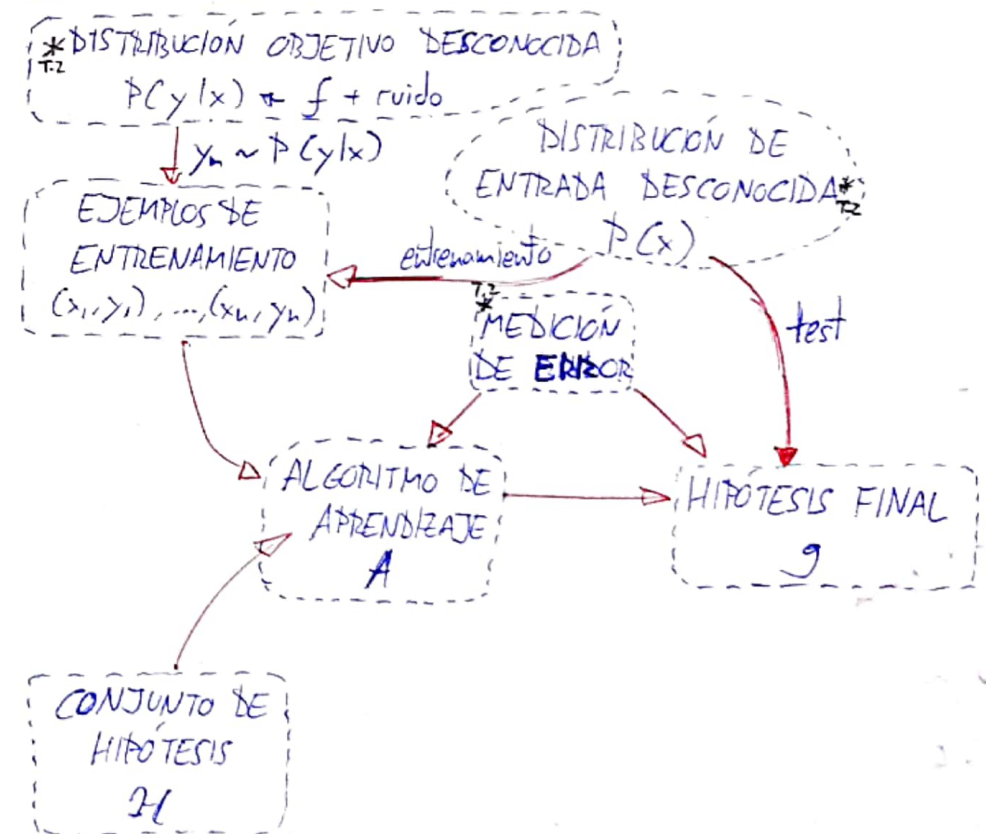 * DISTRIBUCIÓN OBJETIVO DESCONOCIDA
T.2
P(y|x) ← f + ruido
yₙ ~ P(y|x)
DISTRIBUCIÓN DE
ENTRADA DESCONOCIDA *
T.2
P(x)
EJEMPLOS DE
ENTRENAMIENTO
(x₁,y₁), ...,(xₙ,yₙ)
entrenamiento
test
T.2
*
MEDICIÓN
DE ERROR
ALGORITMO DE
APRENDIZAJE
A
HIPÓTESIS FINAL
g
CONJUNTO DE
HIPÓTESIS
H